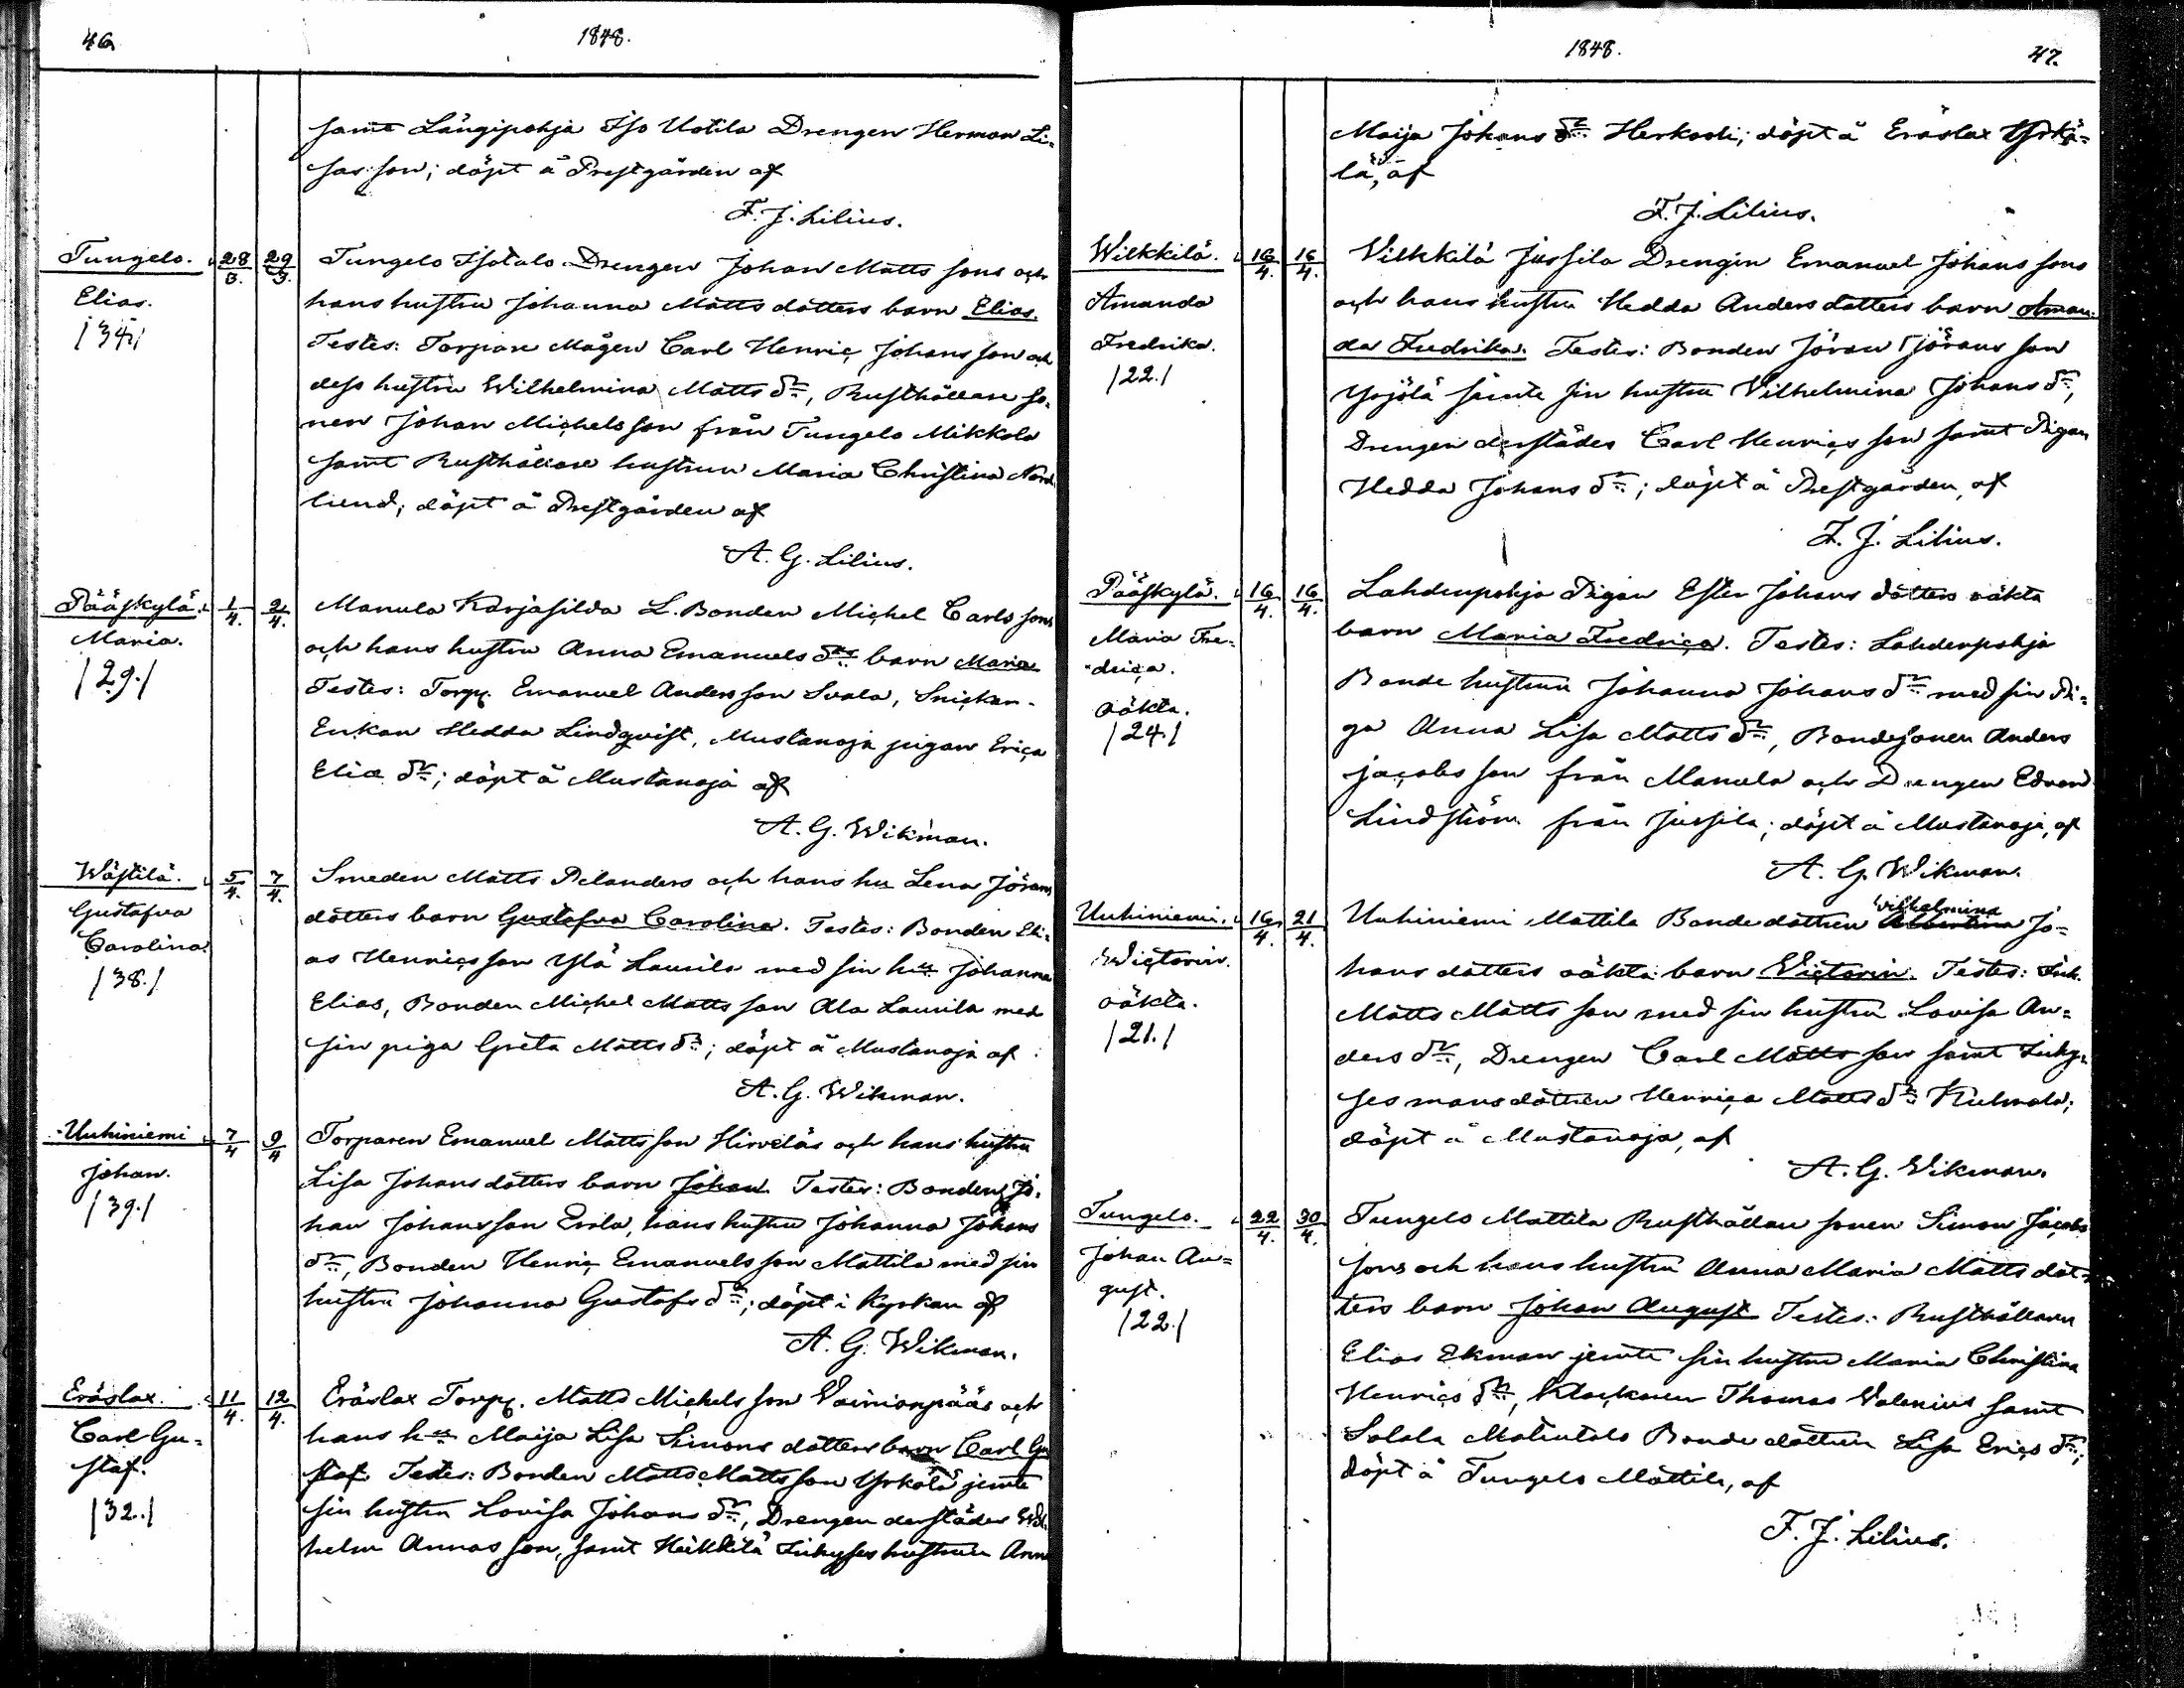 46
1848.
samt Längipohja Iso Uotila Drengen Herman Li=
sas son; döpt å Prestgården af
F. J. Lilius.
Tungelo. 28/3. 29/3. Tungelo Isotalo Drengen Johan Matts sons och
Elias. hans hustru Johanna Matts dotters barn Elias.
/34/ Testes: Torpare Mågen Carl Henric Johans son och
dess hustru Wilhelmina Matts dr, Rusthållare so=
nen Johan Michels son från Tungelo Mikkola
samt Rusthållare hustrun Maria Christina Nord
lund; döpt å Prestgården af
A. G. Lilius.
Pääskylä. 1/4. 2/4. Manula Karjasilda L. Bonden Michel Carls sons
Maria. och hans hustru Anna Emanuels drs barn Maria
/29./ Testes: Torp. Emanuel Anders son Svala, Snickar-
Enkan Hedda Lindqvist, Mustanoja pigan Erica
Elia dr; döpt å Mustanoja af
A. G. Wikman.
Wästilä. 5/4. 7/4. Smeden Matts Pelanders och hans hu Lena Jörans
Gustafva dotters barn Gustafva Carolina. Testes: Bonden Eli=
Carolina. as Henrics son Ylä Laurila med sin hu Johanna
/38./ Elias, Bonden Michel Matts son Ala Laurila med
sin piga Greta Matts dr; döpt å Mustanoja af
A. G. Wikman.
Uuhiniemi 7/4 9/4 Torparen Emanuel Matts son Hirveläs och hans hustru
Johan. Lisa Johans dotters barn Johan. Testes: Bonden Jo=
/39./ han Johans son Erola, hans hustru Johanna Johans
dr, Bonden Henric Emanuels son Mattila med sin
hustru Johanna Gustafs dr; döpt i Kyrkan af
A. G. Wikman.
Eräslax. 11/4. 12/4. Eräslax Torp. Matts Michels son Vainionpääs och
Carl Gu= hans hu Maija Lisa Simons dotters barn Carl Gu
staf. staf. Testes: Bonden Matts Matts son Yrkölä jemte
/32./ sin hustru Lovisa Johans dr, Drengen derstädes Wil
helm Annas son, samt Heikkilä Inhyses hustrun Anna
1848.
47.
Maija Johans dr Herkosti; döpt å Eräslax Yrkö=
lä, af
F. J. Lilius.
Wilkkilä. 16/4. 16/4. Vilkkilä Jussila Drengen Emanuel Johans sons
Amanda och hans hustru Hedda Anders dotters barn Aman=
Fredrika. da Fredrika. Testes: Bonden Jöran Jörans son
/22./ Yrjölä jämte sin hustru Vilhelmina Johans dr,
Drengen derstädes Carl Henrics son samt Pigan
Hedda Johans dr; döpt å Prestgården, af
F. J. Lilius.
Pääskylä. 16/4. 16/4. Lahdenpohja Pigan Ester Johans dotters oäkta
Maria Fre= barn Maria Fredrica. Testes: Lahdenpohja
drica. Bonde hustrun Johanna Johans dr med sin Pi=
oäkta. ga Anna Lisa Matts dr, Bondesonen Anders
/24./ Jacobs son från Manula och Drengen Edvard
Lindström från Jussila; döpt å Mustanoja, af
A. G. Wikman.
Uuhiniemi. 16/4. 21/4. Uuhiniemi Mattila Bonde dottren Albertina Wilhelmina Jo=
Victorin. hans dotters oäkta barn Victorin. Testes: Inh.
oäkta. Matts Matts son med sin hustru Lovisa An=
/21./ ders dr, Drengen Carl Matts son samt Inhy=
ses mans dottren Henrica Matts dr
döpt å Mustanoja, af
A. G. Wikman.
Tungelo. 22/4. 30/4. Tungelo Mattila Rusthållare sonen Simon Jacobs
Johan Au= sons och hans hustru Anna Maria Matts dot=
gust. ters barn Johan August. Testes: Rusthållaren
/22./ Elias Ekman jemte sin hustru Maria Christina
Henrics dr, Klockaren Thomas Valenius samt
Salala Matintalo Bonde dottren Lisa Erics dr;
döpt å Tungelo Mattila, af
F. J. Lilius.